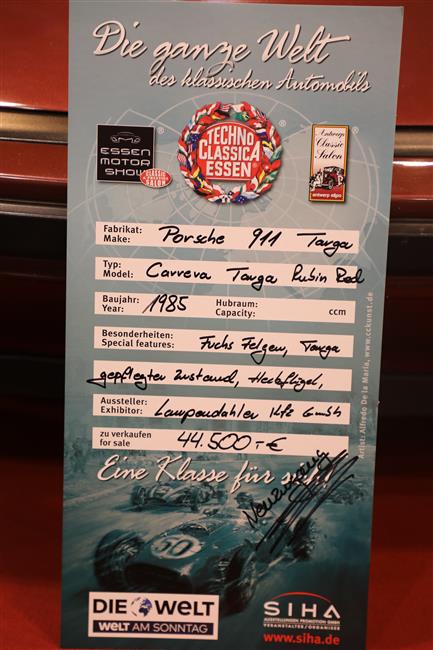 Die ganze Welt
des klassischen Automobils
ESSEN
MOTOR
SHOW
CLASSIC
SALON
TECHNO
CLASSICA
ESSEN
Antwerp
Classic
Salon
antwerp expo
Fabrikat:
Make: Porsche 911 Targa
Typ:
Model: Carrera Targa Rubin Red
Baujahr:
Year: 1985 Hubraum:
Capacity: ccm
Besonderheiten:
Special features: Fuchs Felgen, Targa
gepflegter Zustand, Heckflügel,
Aussteller:
Exhibitor: Lampendahler Kfz GmbH
zu verkaufen
for sale 44.500,- €
Eine Klasse für sich!
50
DIE WELT
WELT AM SONNTAG
SIHA
AUSSTELLUNGEN PROMOTION GMBH
VERANSTALTER/ORGANISER
www.siha.de
Artist: Alfredo De la Maria, www.cckunst.de